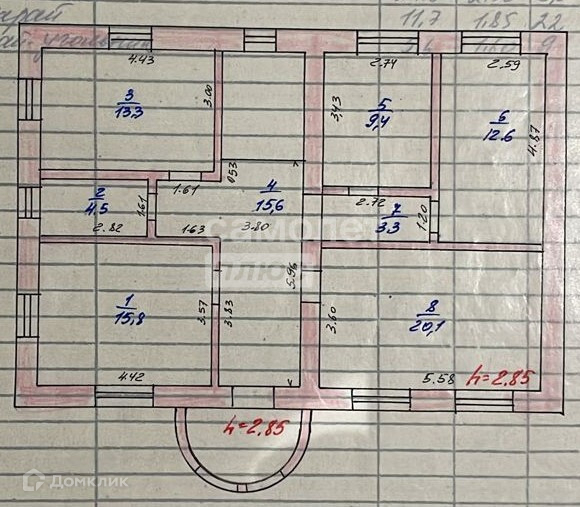 11,7 1,85 22
4.43
2.74
2.59
3
13.3
3.00
3,43
5
9,4
6
12.6
4.87
0,53
4
15,6
1.61
2
4.5
1.61
2.82
1.63
3.80
2.72
7
3.3
1.20
самолет
плюс
1
15,8
3.57
3.83
5.96
3.60
8
20,1
4.42
5.58
h=2.85
h=2.85
Домклик